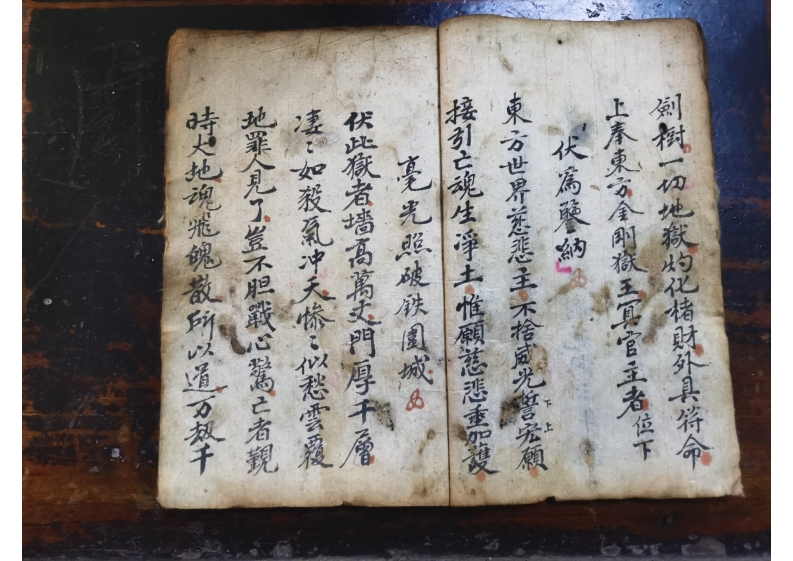 劍樹一切地獄灼化楮財外具符命
上奉東方金剛獄王冥官主者位下
伏爲鑒納
東方世界慈悲主不捨威光誓宏願
下上
接引亡魂生淨土惟願慈悲重加護
毫光照破鉄圍城
伏此獄者墻高萬丈門厚千層
凄〻如殺氣冲天慘〻似愁雲覆
地罪人見了豈不胆戰心驚亡者覩
時大地魂飛魄散所以道万劫千